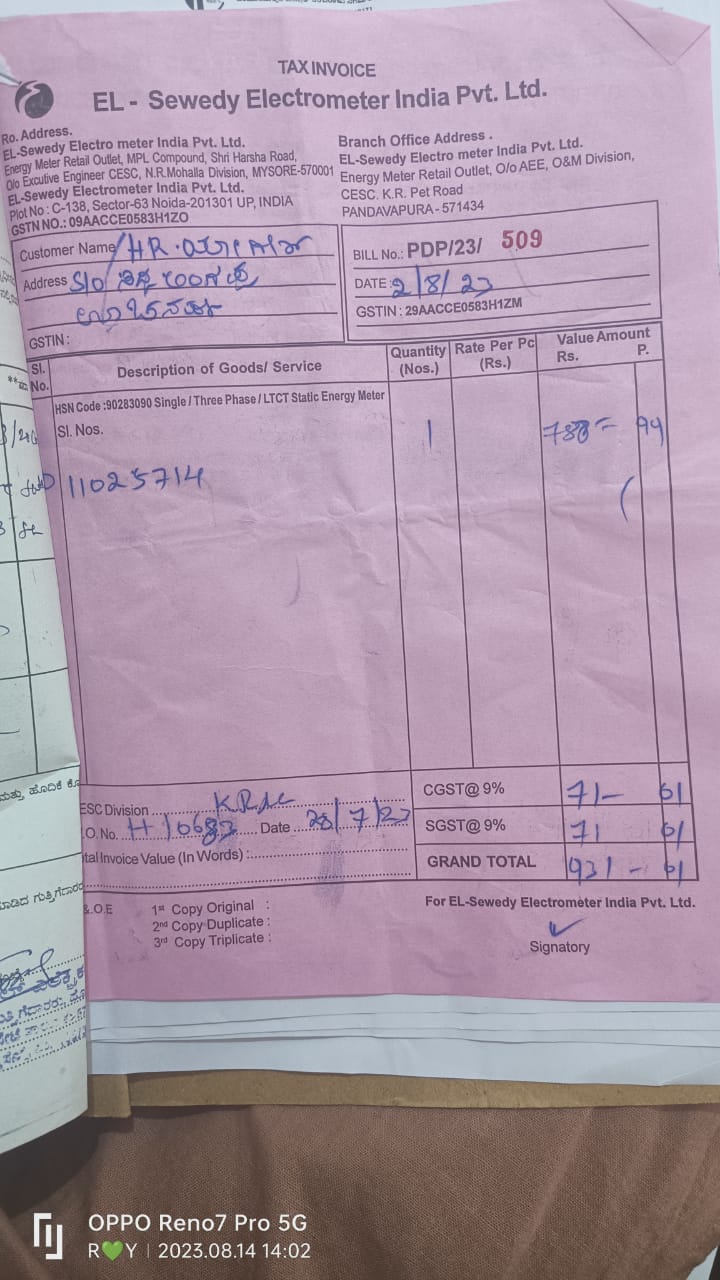 TAX INVOICE
EL - Sewedy Electrometer India Pvt. Ltd.
Ro. Address.
EL-Sewedy Electro meter India Pvt. Ltd.
Energy Meter Retail Outlet, MPL Compound, Shri Harsha Road,
O/o Excutive Engineer CESC, N.R.Mohalla Division, MYSORE-570001
EL-Sewedy Electrometer India Pvt. Ltd.
Plot No : C-138, Sector-63 Noida-201301 UP, INDIA
GSTN NO.: 09AACCE0583H1ZO
Branch Office Address .
EL-Sewedy Electro meter India Pvt. Ltd.
Energy Meter Retail Outlet, O/o AEE, O&M Division,
CESC. K.R. Pet Road
PANDAVAPURA - 571434
Customer Name HR.
Address S/o
GSTIN :
BILL No.: PDP/23/ 509
DATE : 2/8/23
GSTIN : 29AACCE0583H1ZM
Sl. No. Description of Goods/ Service Quantity (Nos.) Rate Per Pc (Rs.) Value Amount Rs. P.
HSN Code :90283090 Single / Three Phase / LTCT Static Energy Meter
Sl. Nos. 1 94
11025714
ESC Division
.O. No. Date 28/7/23
tal Invoice Value (In Words) :
CGST@ 9% 71- 61
SGST@ 9% 71 61
GRAND TOTAL 931 - 61
&.O.E
1st Copy Original :
2nd Copy Duplicate :
3rd Copy Triplicate :
For EL-Sewedy Electrometer India Pvt. Ltd.
Signatory
OPPO Reno7 Pro 5G
R💚Y | 2023.08.14 14:02